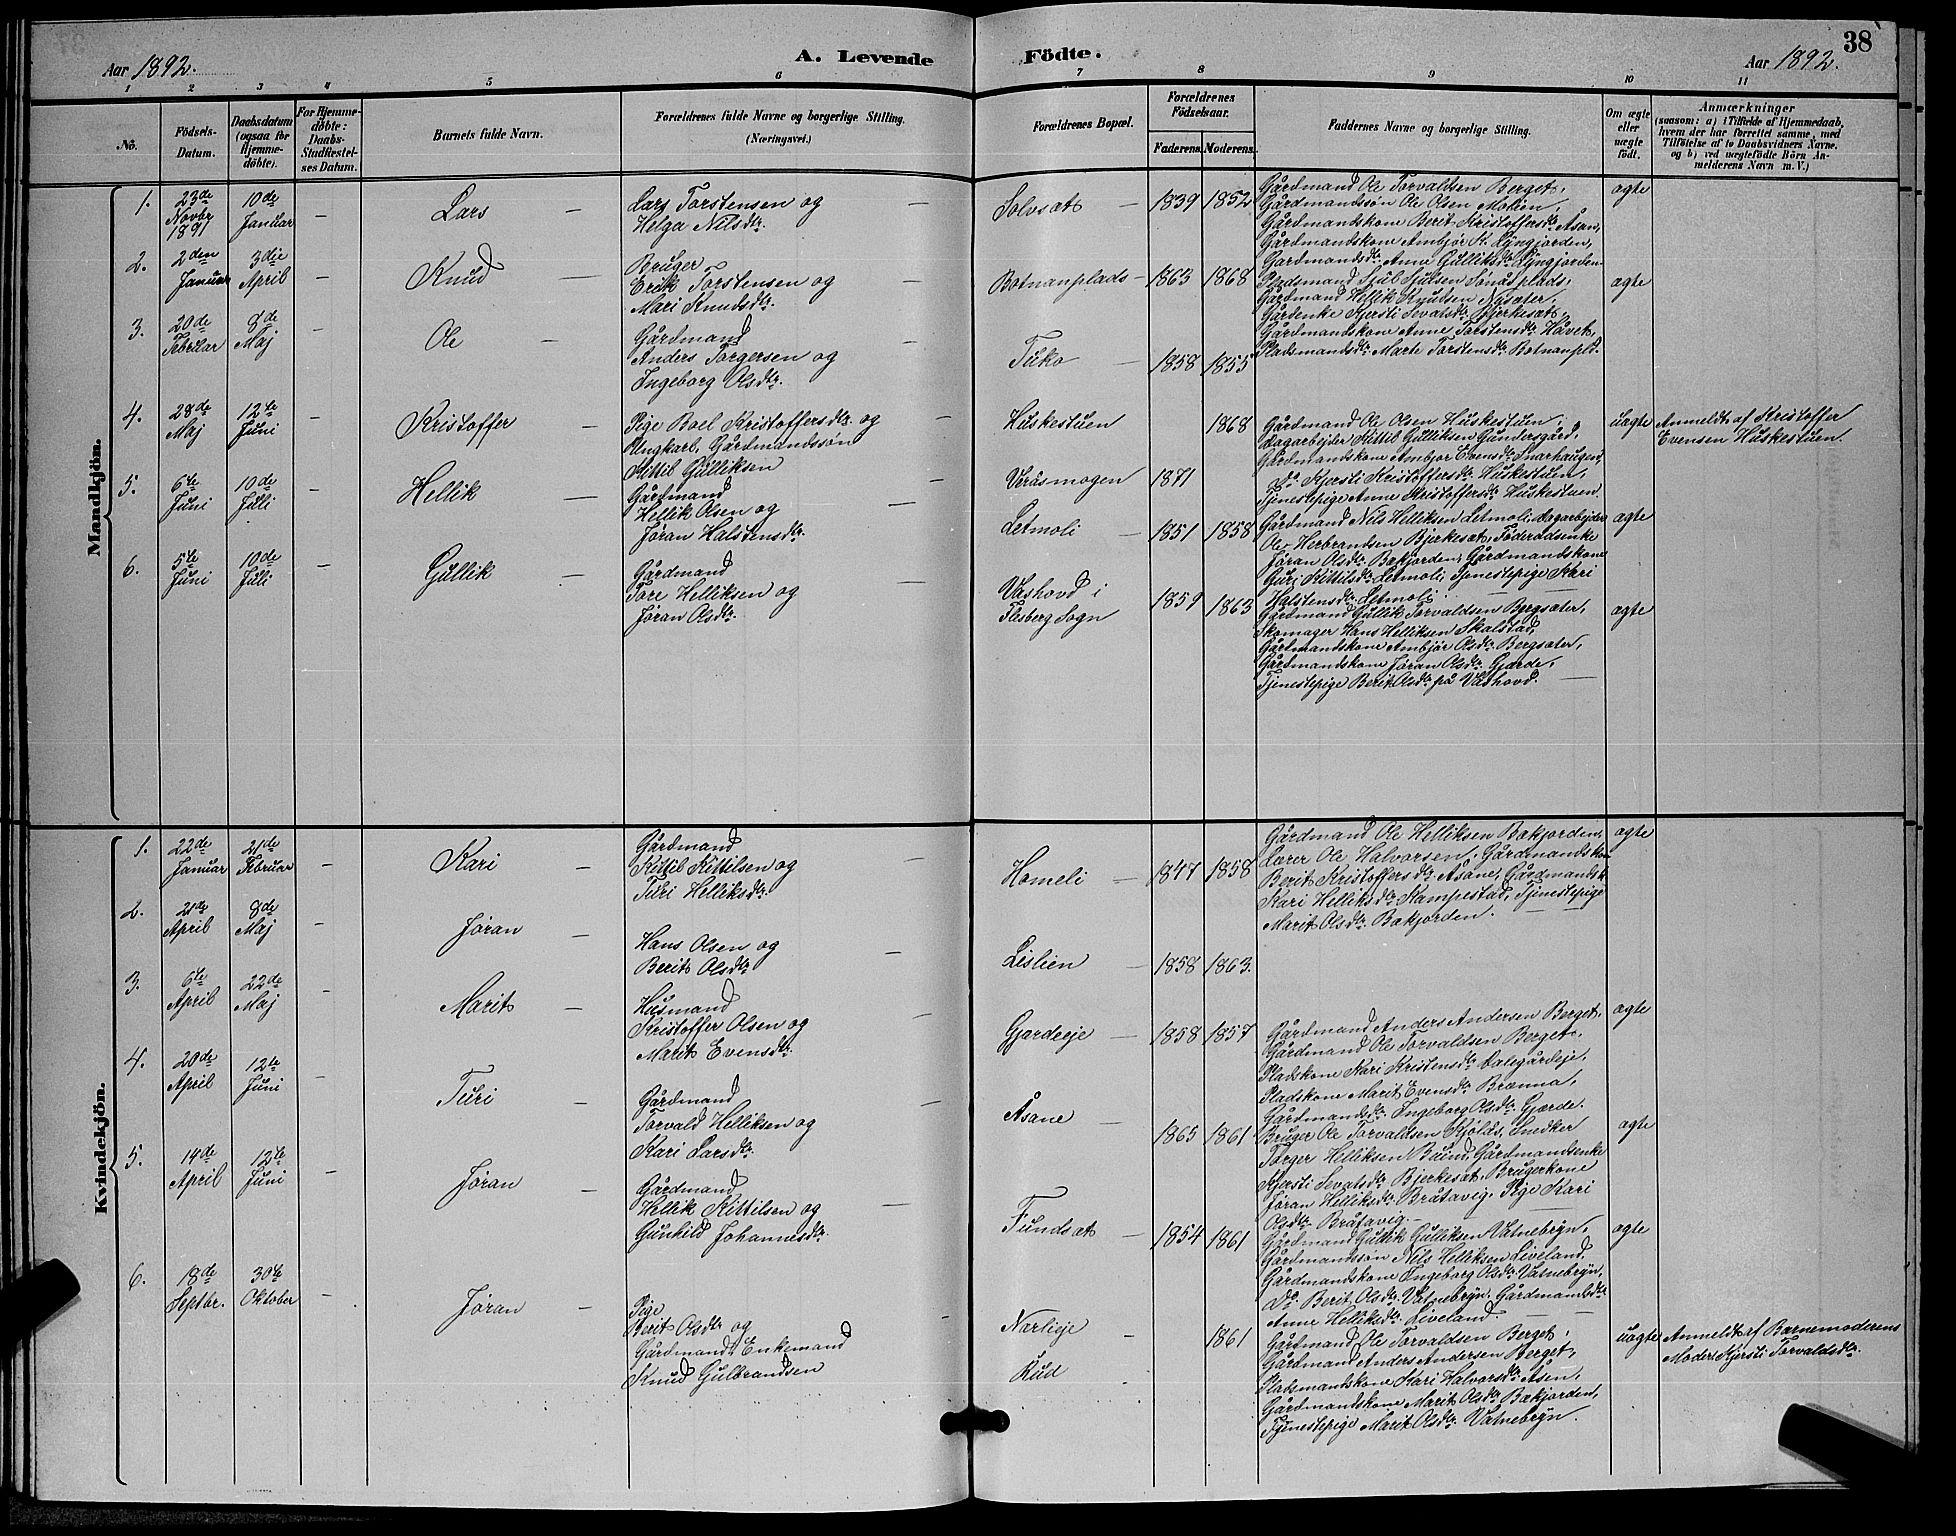 38
Aar 1892.
A. Levende
Födte.
Aar 1892.
1 2 3 4 5 6 7 8 9 10 11
No.
Födsels-
Datum.
Daabsdatum
(ogsaa for
Hjemme-
döbte).
For Hjemme-
döbte:
Daabs-
Stadfæstel-
ses Datum.
Barnets fulde Navn.
Forældrenes fulde Navne og borgerlige Stilling.
(Næringsvei.)
Forældrenes Bopæl.
Forældrenes
Födselsaar.
Faderens. Moderens.
Faddernes Navne og borgerlige Stilling.
Om ægte
eller
uægte
födt.
Anmærkninger
(saasom: a) i Tilfælde af Hjemmedaab,
hvem der har forrettet samme, med
Tilföielse af to Daabsvidners Navne,
og b) ved uægtefödte Börn An-
melderens Navn m. V.)
Mandkjön.
1. 23de Novbr 1891
10de Januar
–
Lars –
Lars Torstensen og –
Helga Nilsdtr.
Solvsæt – 1839 1852
Gårdmand Ole Torvaldsen Berget,
Gårdmandssøn Ole Olsen Molien,
Gårdmandskone Berit Kristoffersdtr. Åsan,
Gårdmandskone Ambjør K. Lyngjorden,
Gårdmandsdtr. Anne Gulliksdtr. Lyngjorden
ægte
2. 2den Januar
3die April
–
Knud –
Bruger
Erik Torstensen og –
Mari Knudsdtr.
Botnanplads – 1863 1868
Pladsmand Sjul Sjulsen Sønåsplads,
Gårdmand Hellik Knudsen Nysæter,
Gårdenke Kjersti Sevatsdtr. Bjerkesæt,
Gårdmandskone Anne Torstensdtr. Håvet,
Pladsmandsdtr. Marte Torstensdtr. Botnanpld.
ægte
3. 20de Februar
8de Maj
–
Ole –
Gårdmand
Anders Torgersen og –
Ingeborg Olsdtr.
Tuko – 1858 1855
4. 28de Maj
12te Juni
–
Kristoffer –
Pige Boel Kristoffersdtr. og –
Ungkarl, Gårdmandssøn
Kittil Gulliksen –
Huskestuen 1868
Veråsmogen 1871
Gårdmand Ole Olsen Huskestuen,
Dagarbejder Kittil Gulliksen Gundersgård,
Gårdmandskone Ambjør Evensdtr. Snarhaugend,
do Kjersti Kristoffersdtr. Huskestuen,
Tjenestepige Anne Kristoffersdtr. Huskestuen.
uægte
Anmeldt af Kristoffer
Evensen Huskestuen.
5. 6te Juni
10de Juli
–
Hellik –
Gårdmand
Hellik Olsen og –
Jøran Halstensdtr.
Letmoli – 1851 1858
Gårdmand Nils Helliksen Letmoli, Dagarbejder
Ole Herbrandsen Bjerkesæt, Föderådsenke
Jøran Olsdtr. Bakjorden, Gårdmandskone
Guri Kittilsdtr. Letmoli, Tjenestepige Kari
Halstensdtr. Letmoli. – –
ægte
6. 5te Juni
10de Juli
–
Gullik –
Gårdmand
Tore Helliksen og –
Jøran Olsdtr.
Våshovd i
Flesberg Sogn 1859 1863
Gårdmand Gullik Torvaldsen Bergsæter,
Skomager Hans Helliksen Skalstad,
Gårdmandskone Ambjør Olsdtr. Bergsæter,
Gårdmandskone Jøran Olsdtr. Gjærde,
Tjenestepige Berit Olsdtr. på Våshovd. –
ægte
Kvindekjön.
1. 22de Januar
21de Februar
–
Kari –
Gårdmand
Kittil Kittilsen og –
Turi Helliksdtr.
Homeli – 1847 1858
Gårdmand Ole Helliksen Bakjorden,
Lærer Ole Halvorsen, Gårdmandskone
Berit Kristoffersdtr. Åsane, Gårdmandsk.
Kari Helliksdtr. Kampestad, Tjenestepige
Marit Olsdtr. Bakjorden. – –
ægte
2. 21de April
8de Maj
–
Jøran –
Hans Olsen og –
Berit Olsdtr.
Lislien – 1858 1863.
3. 6te April
22de Maj
–
Marit –
Husmand
Kristoffer Olsen og –
Marit Evensdtr.
Gjærdeeje – 1858 1857
Gårdmand Anders Andersen Berget,
Gårdmand Ole Torvaldsen Berget,
Pladskone Kari Kristensdtr. Dalegårdeje,
Pladskone Marit Evensdtr. Brænna,
Gårdmandsdtr. Ingeborg Olsdtr. Gjærde.
ægte
4. 20de April
12te Juni
–
Turi –
Gårdmand
Torvald Helliksen og –
Kari Larsdtr.
Åsane – 1865 1861
Bruger Ole Torvaldsen Kjølds, Snedker
Torger Helliksen Buind, Gårdmandsenke
Kjersti Sevatsdtr. Bjerkesæt, Brugerkone
Jøran Helliksdtr. Bråtavig, Pige Kari
Olsdtr. Bråtavig. –
ægte
5. 14de April
12te Juni
–
Jøran –
Gårdmand
Hellik Kittilsen og –
Gunhild Johannesdtr.
Fundsæt – 1854 1861
Gårdmand Gullik Gulliksen Vatnebryn,
Gårdmandssøn Nils Helliksen Liveland,
Gårdmandskone Ingeborg Olsdtr. Vatnebryn,
Do. Berit Olsdtr. Vatnebryn, Gårdmandsdtr.
Anne Helliksdtr. Liveland. – –
ægte
6. 18de Septbr.
30te Oktober
–
Jøran –
Pige
Berit Olsdtr. og
Gårdmand, Enkemand
Knud Gulbrandsen
Narlieje – 1861
Rud –
Gårdmand Ole Torvaldsen Berget,
Gårdmand Anders Andersen Berget,
Pladsmandskone Kari Halvorsdtr. Åsen,
Gårdmandskone Marit Olsdtr. Bakjorden,
Tjenestepige Marit Olsdtr. Vatnebryn.
uægte
Anmeldt af Barnemoderens
Moder Kjersti Torvaldsdtr.